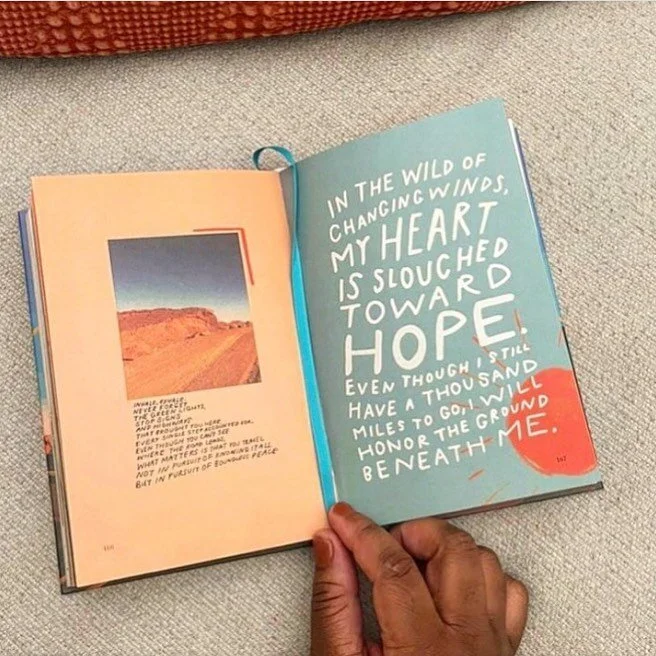 INHALE, EXHALE,
NEVER FORGET
THE GREEN LIGHTS,
STOP SIGNS
AND HIGHWAYS
THAT BROUGHT YOU HERE.
EVERY SINGLE STEP ACCOUNTED FOR.
EVEN THOUGH YOU CAN'T SEE
WHERE THE ROAD LEADS,
WHAT MATTERS IS THAT YOU TRAVEL
NOT IN PURSUIT OF KNOWING IT ALL
BUT IN PURSUIT OF BOUNDLESS PEACE
166
IN THE WILD OF
CHANGING WINDS,
MY HEART
IS SLOUCHED
TOWARD
HOPE.
EVEN THOUGH I STILL
HAVE A THOUSAND
MILES TO GO, I WILL
HONOR THE GROUND
BENEATH ME.
167